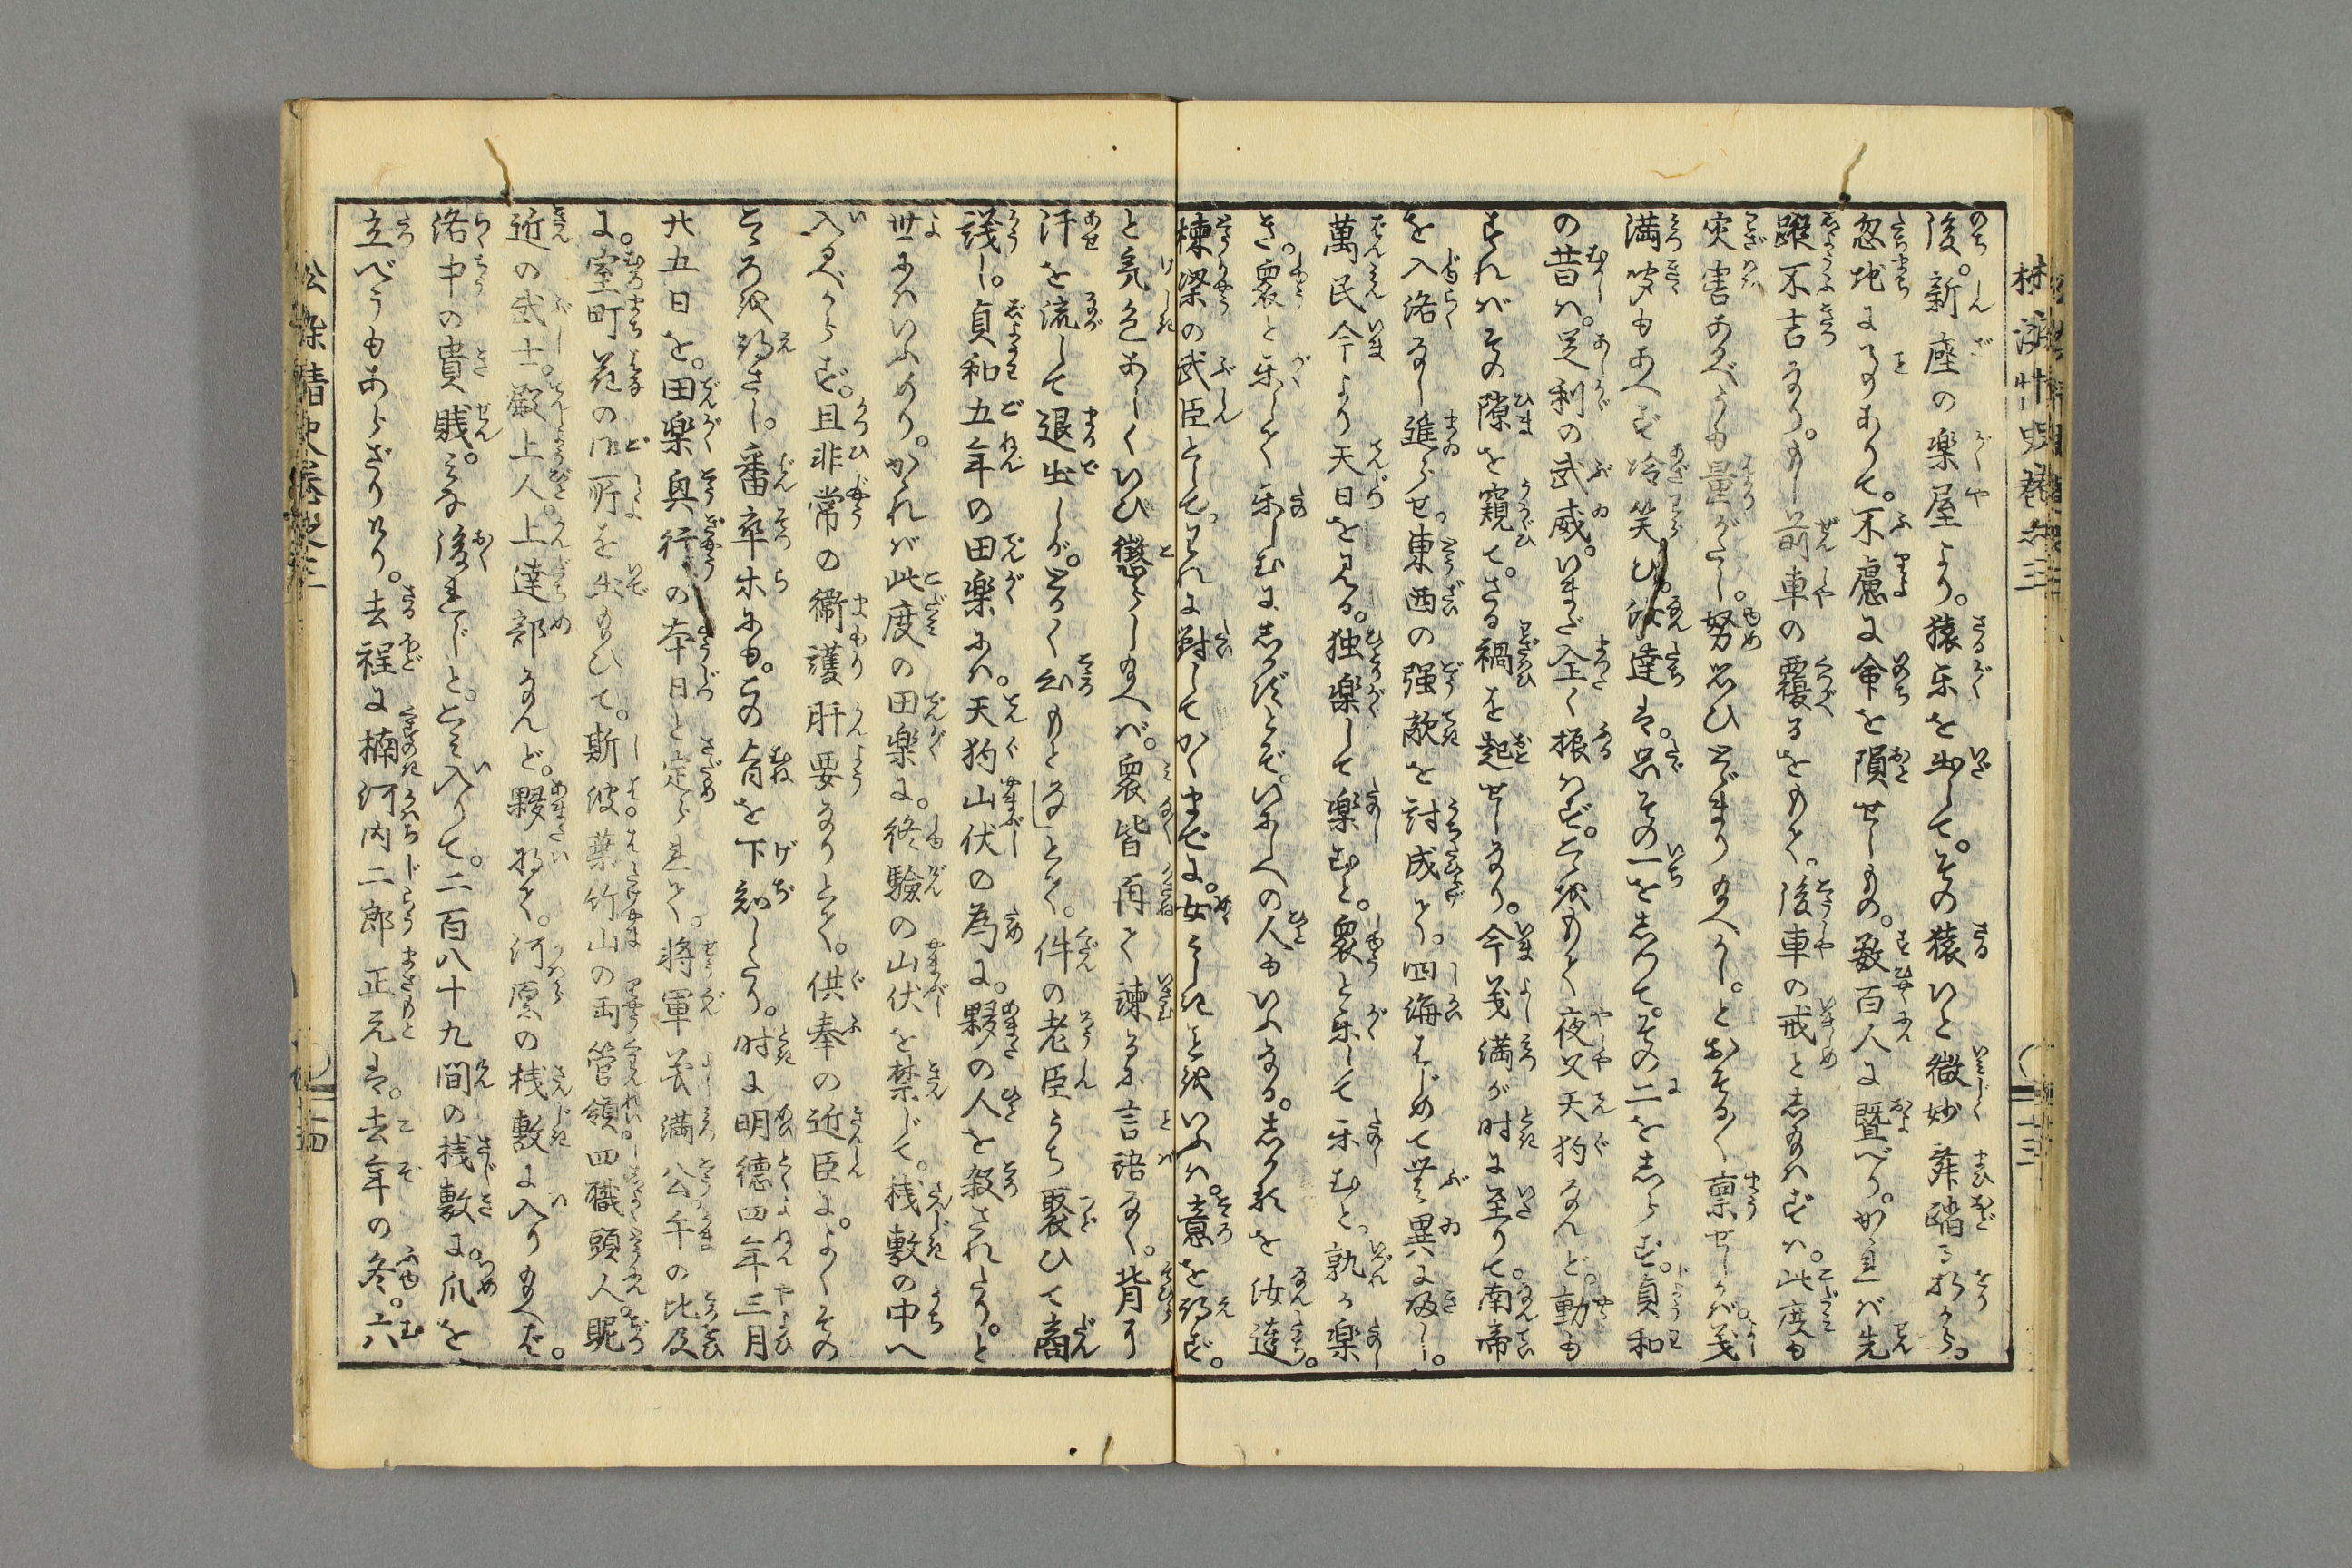 後。新座の楽屋より。猿乐を出して。その猿いと微妙舞踏る折から。
忽地にることありて。不慮に命を隕せしもの。数百人に曁べり。かゝれば先
蹤不吉なり。もし前車の覆るをもて。後車の戒と志給はずは。此度も
灾害あるべうも量がたし。努思ひとゞまり給へかし。とおそる〳〵稟せしかば。義
満聞もあへず冷笑ひ。汝達は。只その一を志りて。その二を志らず。貞和
の昔は。足利の武威。いまだ全く振はず。こゝをもて夜叉天狗なんど。動も
すればその隙を窺て。さる禍を起せしなり。今義満が时に至りて。南帝
を入洛なし進らせ。東西の强敵を討成て。四海はじめて無異に皈し。
萬民今より天日を見る。独楽して楽むと。衆と乐して乐むと。孰か楽
き。衆と乐して乐しむに志かずとぞ。いにしへの人もいふなる。志かるを汝達。
棟梁の武臣として。これに對してかくまでに。女々しきことをいふは。意を得ず。
と氣色あしくいひ懲らし給へば。衆皆再て諫るに言語なく。背に
汗を流して退出しが。かくてはとて。件の老臣うち聚ひて商
議し。貞和五年の田楽には。天狗山伏の為に。夥の人を殺されたり。と
世にはいふめり。かゝれば此度の田楽に。修驗の山伏を禁じて。桟敷の中へ
入るべからず。且非常の衞護肝要なりとて。供奉の近臣に。よくその
こゝろを得さし。番卒等にも。この旨を下知したり。时に明德四年三月
廿五日を。田楽興行の本日と定られて。將軍義満公。午の比及
に。室町花の御所を出給ひて。斯波葉竹山の両管領。四職頭人。昵
近の武士。殿上人。上達部なんど。夥将て。河原の桟敷に入り給へば。
洛中の貴賎。みな後れじと。こみ入りて。二百八十九間の桟敷に。爪を
立べうもあらざりけり。去程に楠河内二郎正元は。去年の冬。六